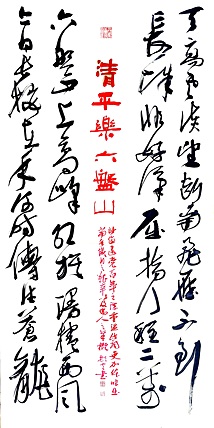 天高雲淡望斷南飛雁不到
長城非好漢屈指行程二萬
清平樂六盤山
六盤山上高峰紅旗漫捲西風
今日長纓在手何時縛住蒼龍